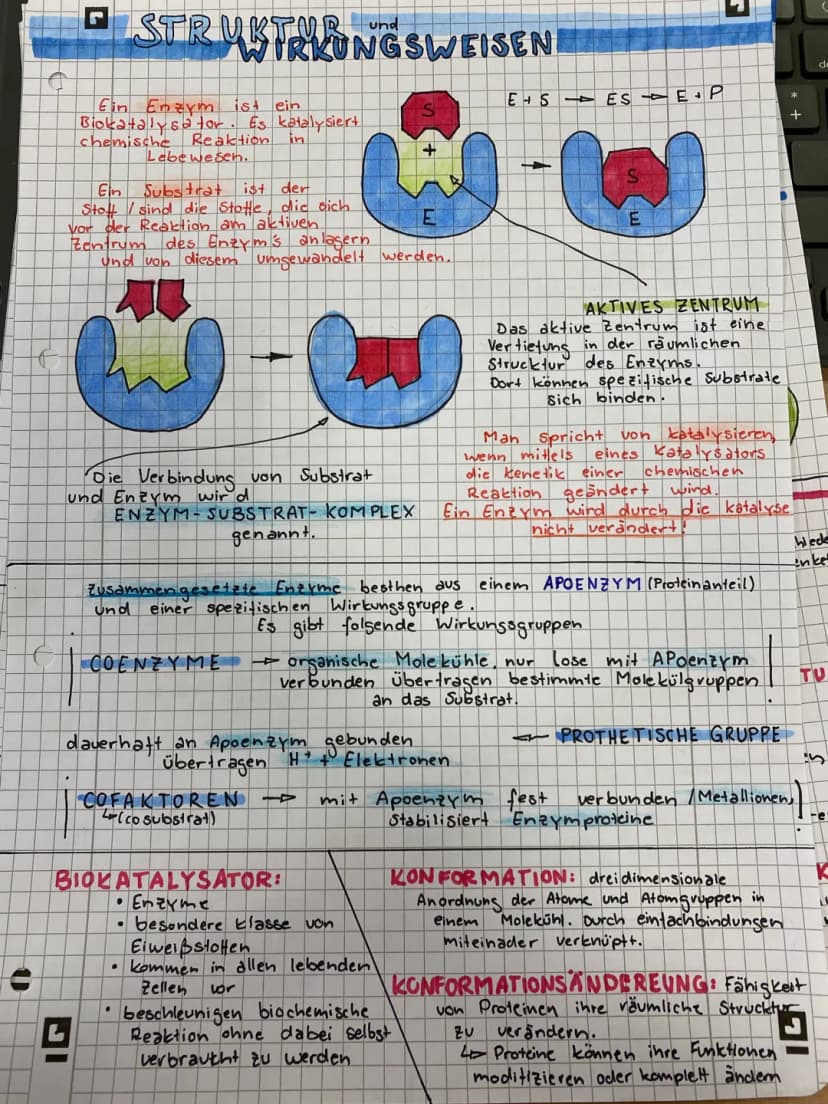 STRUKTUR und
WIRKUNGSWEISEN
Ein Enzym ist ein
Biokatalysator. Es katalysiert
chemische Reaktion in
Lebewesen.
Ein Substrat ist der
Stoff / sind die Stoffe, die sich
vor der Reaktion am aktiven
Zentrum des Enzym's anlagern
und von diesem umgewandelt werden.
S
+
E
E + S → ES → E + P
S
E
AKTIVES ZENTRUM
Das aktive Zentrum ist eine
Vertiefung in der räumlichen
Strucktur des Enzyms.
Dort können spezifische Substrate
sich binden.
Die Verbindung von Substrat
und Enzym wird
ENZYM-SUBSTRAT-KOMPLEX
genannt.
Man spricht von katalysieren,
wenn mittels eines Katalysators
die Kenetik einer chemischen
Reaktion geändert wird.
Ein Enzym wird durch die katalyse
nicht verändert!
zusammengesetzte Enzyme besthen aus einem APOENZYM (Proteinanteil)
und einer spezifischen Wirkungsgruppe.
Es gibt folgende Wirkungsgruppen
COENZYME → organische Molekühle, nur lose mit APoenzym
verbunden übertragen bestimmte Molekülgruppen
an das Substrat.
dauerhaft an Apoenzym gebunden ← PROTHETISCHE GRUPPE
übertragen H⁺ + Elektronen
COFAKTOREN → mit Apoenzym fest verbunden /Metallionen,)
↳(cosubstrat) Stabilisiert Enzymproteine
BIOKATALYSATOR:
• Enzyme
• besondere klasse von
Eiweißstoffen
• kommen in allen lebenden
Zellen vor
• beschleunigen biochemische
Reaktion ohne dabei selbst
verbraucht zu werden
KONFORMATION: dreidimensionale
Anordnung der Atome und Atomgruppen in
einem Molekühl. Durch einfachbindungen
miteinader verknüpft.
KONFORMATIONSÄNDEREUNG: Fähigkeit
von Proteinen ihre räumliche Strucktur
zu verändern.
↳ Proteine können ihre Funktionen
modifizieren oder komplett ändern